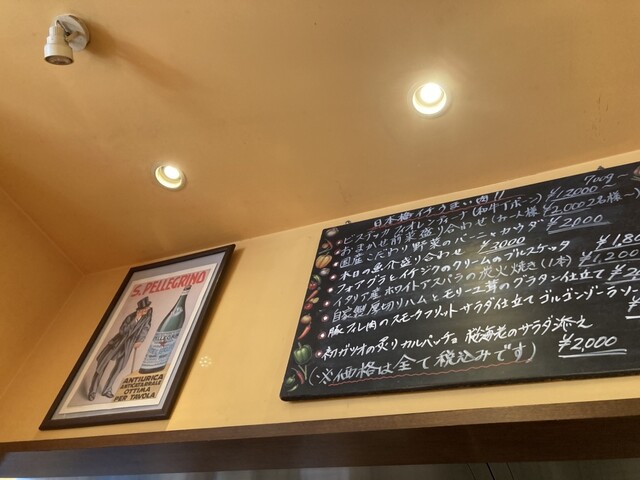 S. PELLEGRINO
ANTIURICA
ANTICATARRALE
OTTIMA
PER TAVOLA
日本橋イチうまい肉!!
ビステッカ フィオレンティーナ(和牛Tボーン) 700g〜 ¥13000〜
おまかせ前菜盛り合わせ(お一人様 ¥2,000 2名様〜)
国産こだわり野菜のバーニャカウダ ¥2,000
本日の魚介盛り合わせ ¥3000
フォアグラとイチジクのクリームのブルスケッタ ¥1,80
イタリア産ホワイトアスパラの炭火焼き(1本) ¥1,200
自家製厚切りハムとモリーユ茸のグラタン仕立て
豚フィレ肉のスモークフリット サラダ仕立て ゴルゴンゾーラソー
初ガツオの炙りカルパッチョ 桜海老のサラダ添え ¥2,000
(※価格は全て税込みです)